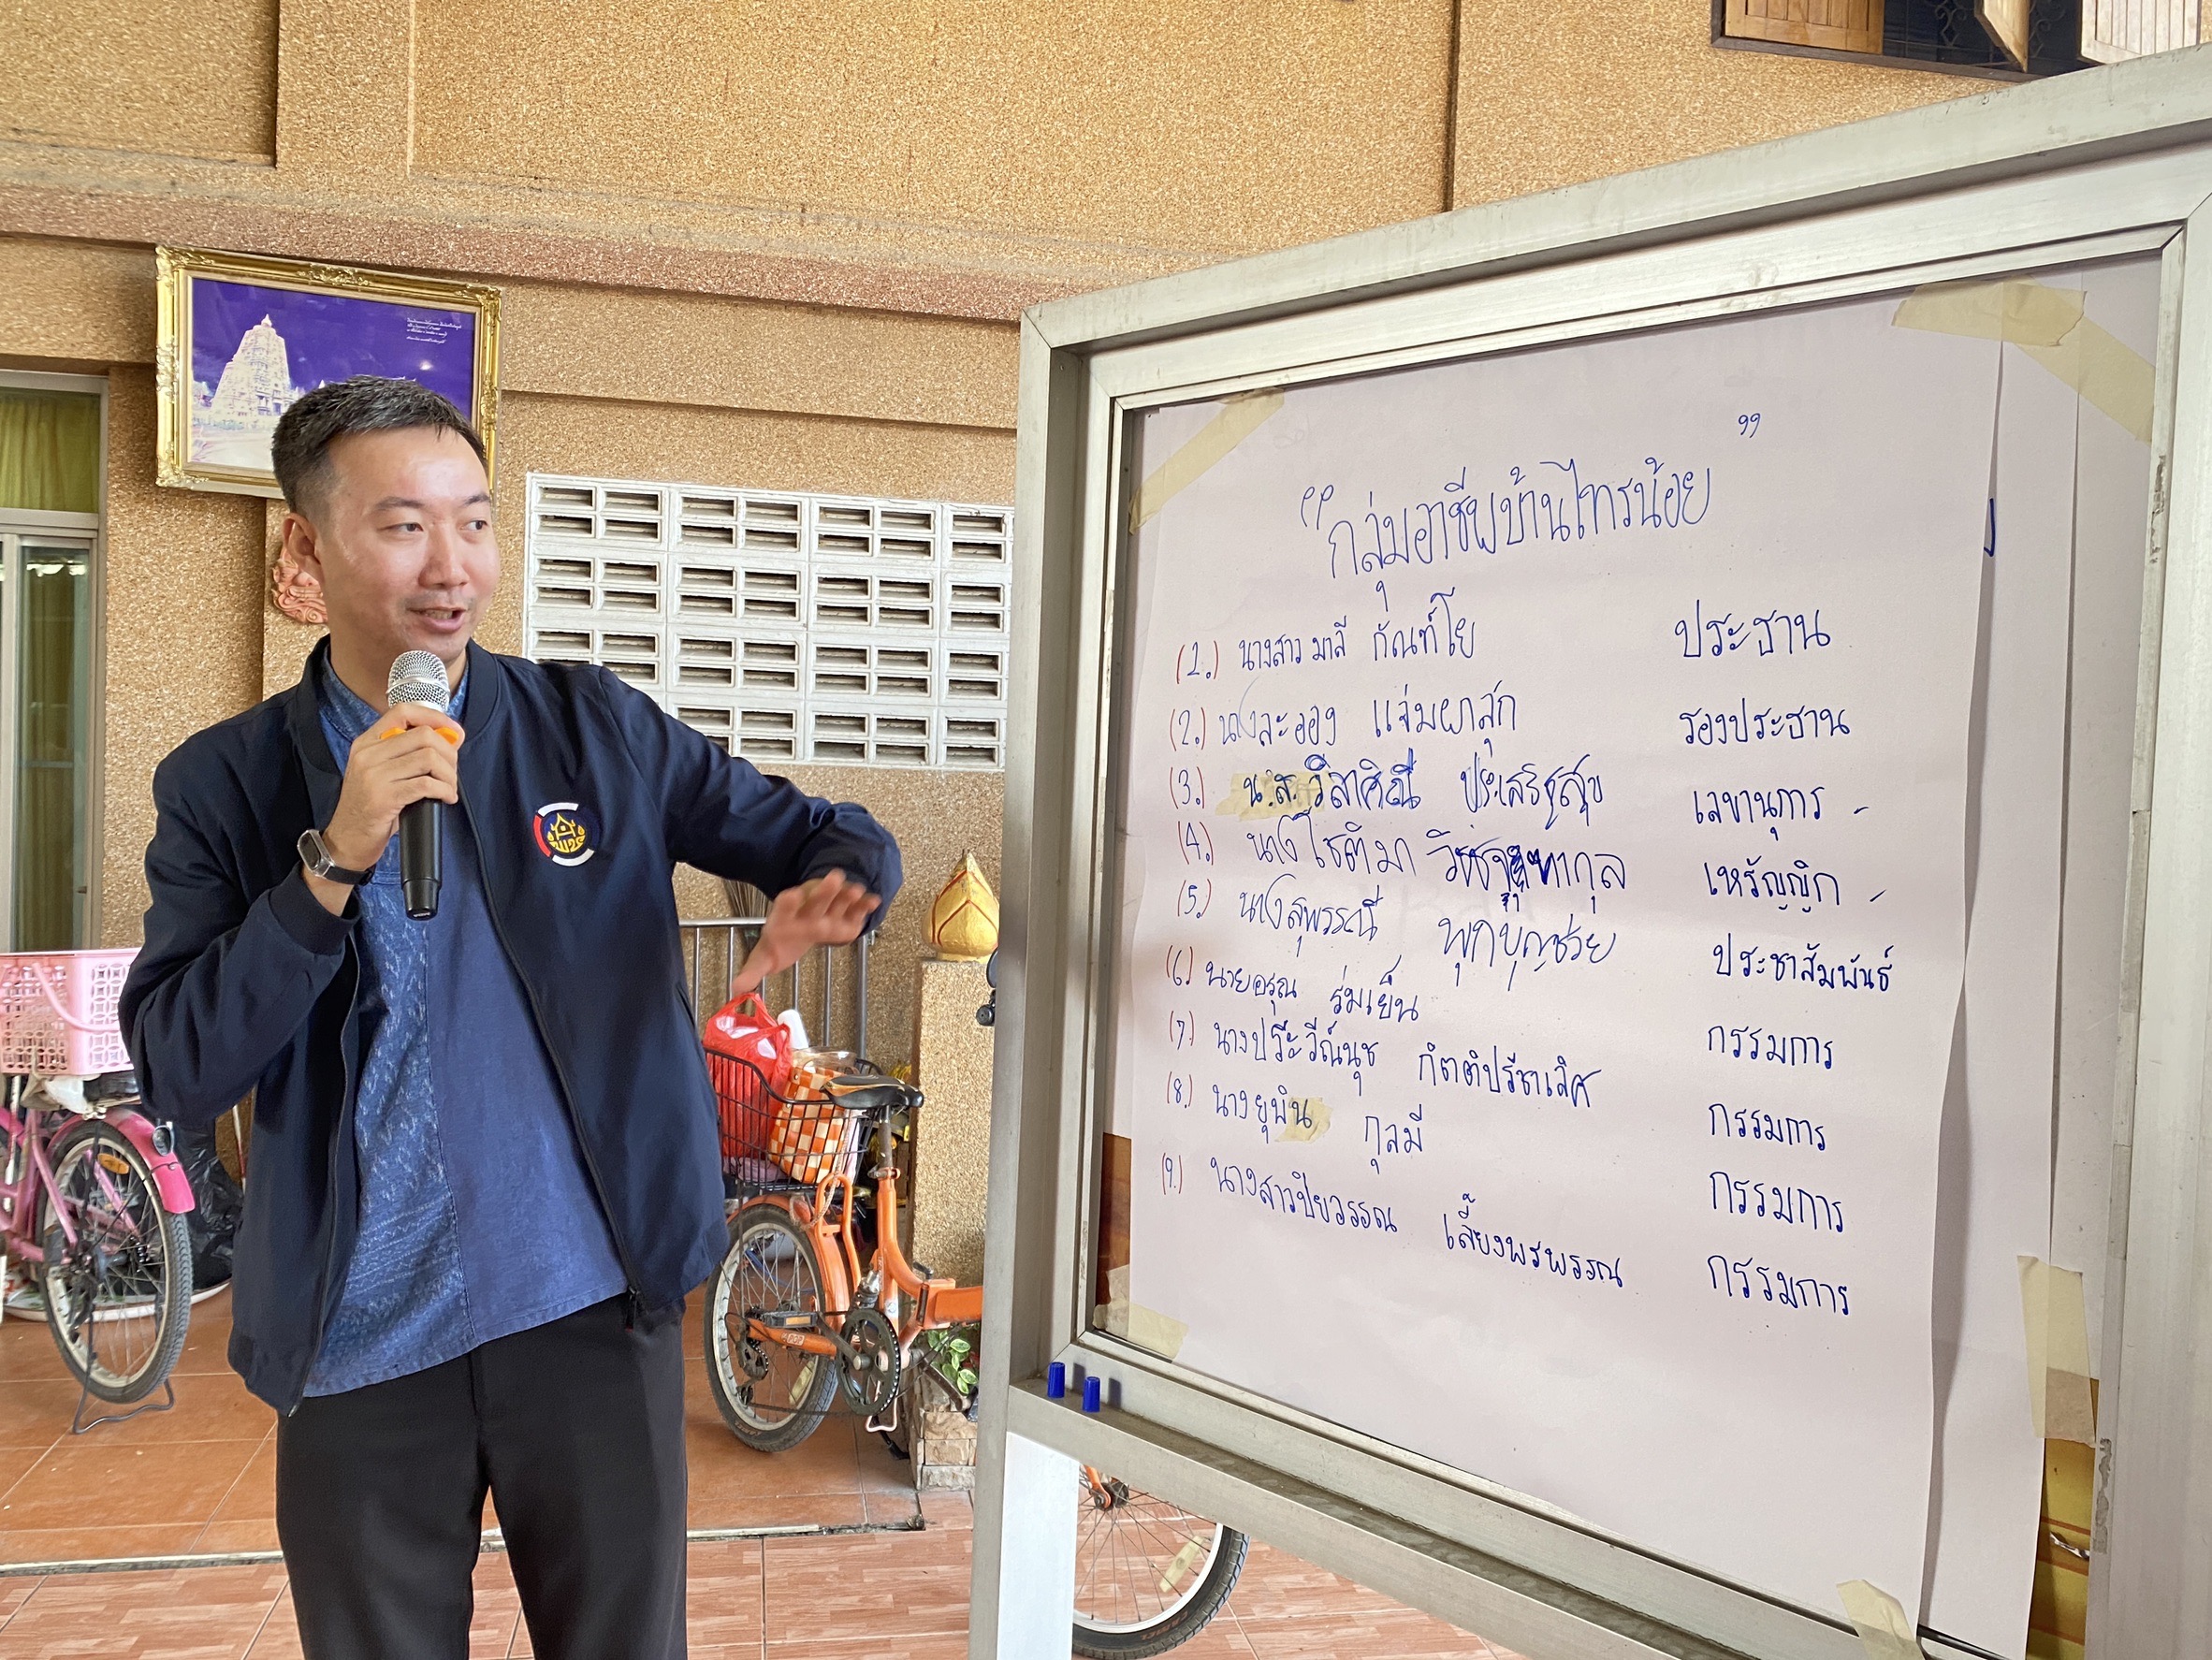 "กลุ่มอาชีพบ้านไทรน้อย"
(1.) นางสาว มาลี กัณฑ์โย ประธาน
(2.) นางละออง แจ่มผาสุก รองประธาน
(3.) น.ส. วิลาศิณี ประเสริฐสุข เลขานุการ -
(4.) นางโชติมา เหรัญญิก -
(5.) นางสุพรรณี พุกบุญช่วย ประชาสัมพันธ์
(6.) นายอรุณ ร่มเย็น กรรมการ
(7.) กรรมการ
(8.) นางยุพิน กุลมี กรรมการ
(9.) นางสาวปิยวรรณ เลี้ยงพรพรรณ กรรมการ